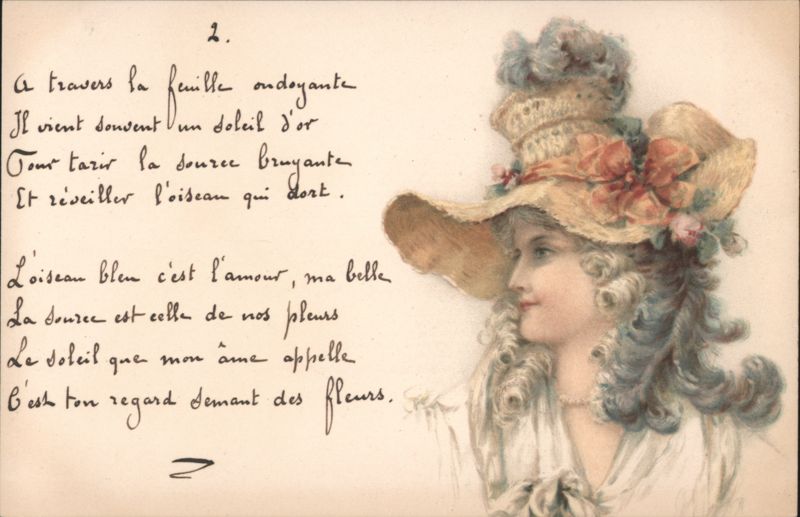 2.
A travers la feuille ondoyante
Il vient souvent un soleil d'or
Pour tarir la source bruyante
Et réveiller l'oiseau qui dort.
L'oiseau bleu c'est l'amour, ma belle
La source est celle de nos pleurs
Le soleil que mon âme appelle
C'est ton regard semant des fleurs.